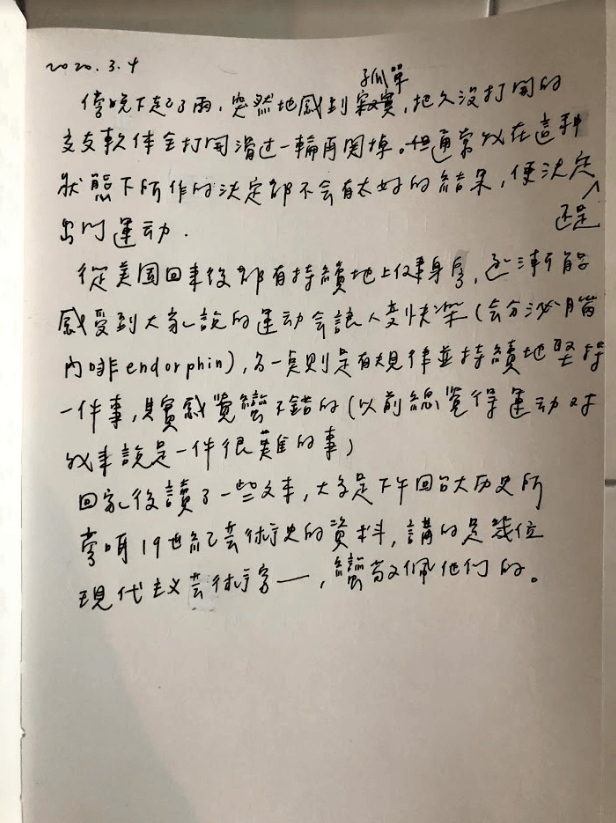 2020.3.4
孤單
傍晚下起了雨，突然地感到寂寞，把久沒打開的
交友軟体全打開滑过一輪再関掉。但通常我在這種
狀態下所作的決定都不会有太好的結果，便決定
還是
出门運动．
從美国回來後都有持續地上健身房，逐漸能
感受到大家說的運动会讓人变快樂（会分泌腦
內啡endorphin），另一点則是有規律並持續地堅持
一件事，其實感覚蠻不錯的（以前總覚得運动对
我來說是一件很難的事）
回家後讀了一些文本，大多是下午回台大历史所
旁听19世紀芸術史的資料，講的是幾位
現代主义芸術家——，蠻敬佩他们的。